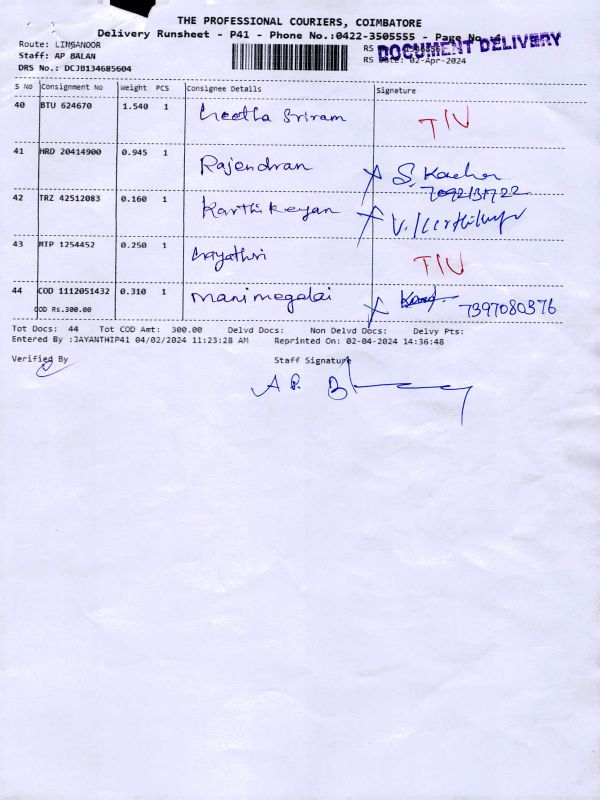 THE PROFESSIONAL COURIERS, COIMBATORE
Delivery Runsheet - P41 - Phone No.:0422-3505555 - Page No. 4
Route: LINGANOOR
RS
DOCUMENT DELIVERY
Staff: AP BALAN
RS Date: 02-Apr-2024
DRS No.: DCJB134685604
S No Consignment No Weight PCS Consignee Details Signature
40 BTU 624670 1.540 1 Geetha Sriram
41 HRD 20414900 0.945 1 Rajendran S.
42 TRZ 42512083 0.160 1 Karthikeyan
43 MTP 1254452 0.250 1 Gayathri
44 COD 1112051432 0.310 1 Manimegalai 7397080376
COD Rs.300.00
Tot Docs: 44 Tot COD Amt: 300.00 Delvd Docs: Non Delvd Docs: Delvy Pts:
Entered By :JAYANTHIP41 04/02/2024 11:23:28 AM Reprinted On: 02-04-2024 14:36:48
Verified By Staff Signature
A P.